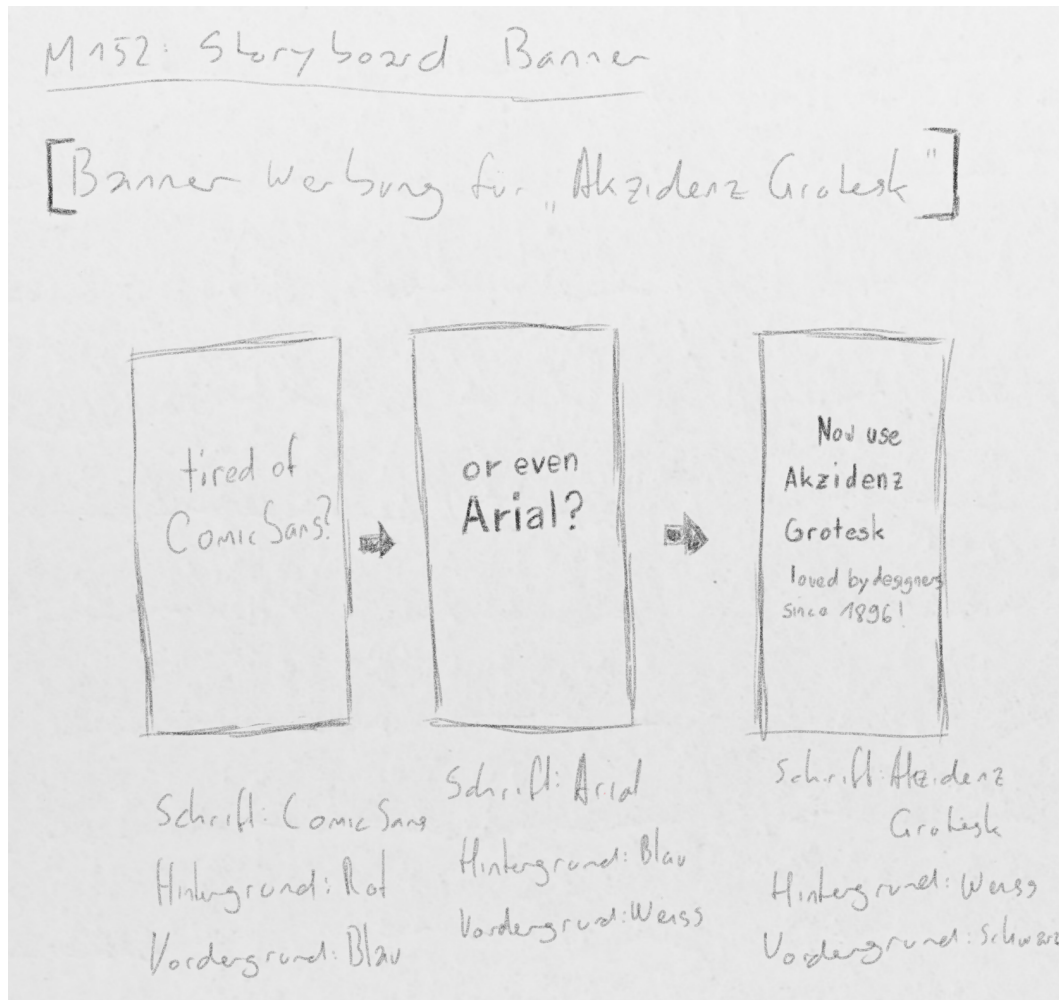 M152: Storyboard Banner
[Banner Werbung für „Akzidenz Grotesk"]
tired of
Comic Sans?
or even
Arial?
Now use
Akzidenz
Grotesk
loved by designers
since 1896!
Schrift: Comic Sans
Hintergrund: Rot
Vordergrund: Blau
Schrift: Arial
Hintergrund: Blau
Vordergrund: Weiss
Schrift: Akzidenz
Grotesk
Hintergrund: Weiss
Vordergrund: Schwarz